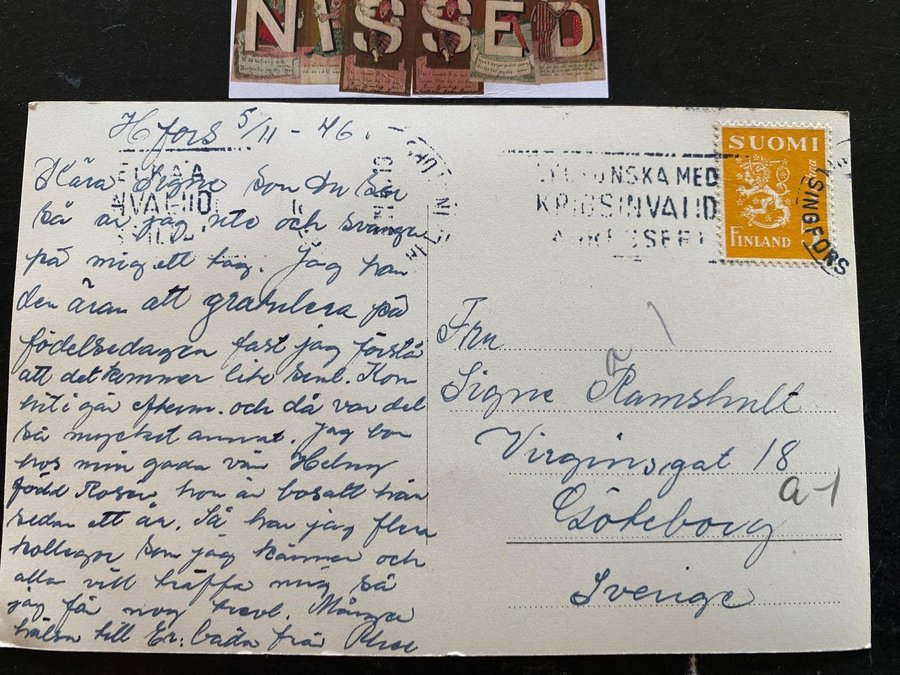 NISSED
H fors 5/11 - 46.
Kära Signe som Du ser
så är jag ute och svänger
på mig ett tag. Jag har
den äran att gratulera på
födelsedagen fast jag förstå
att det kommer lite sent. Kom
hit i går efterm. och då var det
så mycket annat. Jag bor
hos min goda vän
född Rosen, hon är bosatt här
sedan ett år. Så har jag flera
kollegor som jag känner och
alla vill träffa mig så
jag får nog trevl. Många
hälsn till Er båda från
INVALIID
KRIGSINVALID
MED
SUOMI
FINLAND
HELSINGFORS
Fru
Signe Ramshult
Virginsgat 18
a-1
Göteborg
Sverige